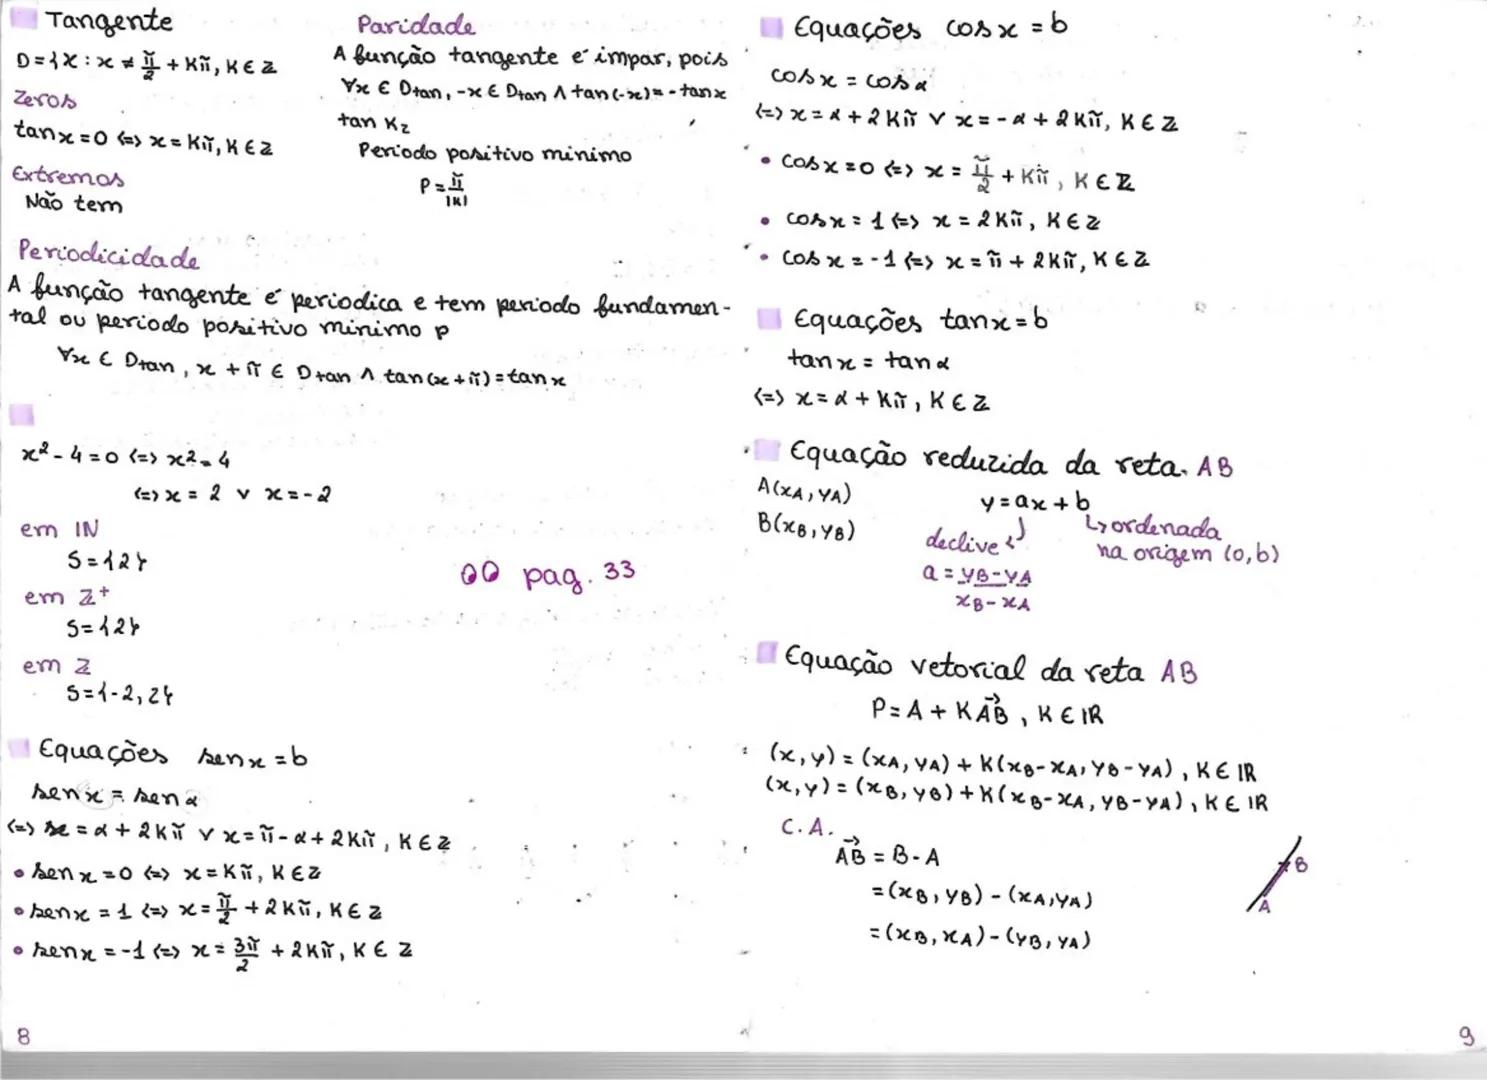 Tangente
D={x : x ≠ π/2 + Kπ, K ∈ Z
Zeros
tan x = 0 <=> x = Kπ, K ∈ Z
Extremos
Não tem
Paridade
A função tangente é impar, pois
∀x ∈ Dtan, -x ∈ Dtan ∧ tan(-x) = - tan x
tan Kz
Periodo positivo minimo
P = π/|K|
Periodicidade
A função tangente é periodica e tem periodo fundamen-
tal ou periodo positivo minimo p
∀x ∈ Dtan, x + π ∈ Dtan ∧ tan(x+π) = tan x
x² - 4 = 0 <=> x² = 4
<=> x = 2 ∨ x = -2
em IN
S={2}
em Z+
S={2}
em Z
S={-2, 2}
pag. 33
Equações sen x = b
sen x = sen α
<=> x = α + 2Kπ ∨ x = π - α + 2Kπ, K ∈ Z
• sen x = 0 <=> x = Kπ, K ∈ Z
• sen x = 1 <=> x = π/2 + 2Kπ, K ∈ Z
• sen x = -1 <=> x = 3π/2 + 2Kπ, K ∈ Z
8
Equações cos x = b
cos x = cos α
<=> x = α + 2Kπ ∨ x = -α + 2Kπ, K ∈ Z
• cos x = 0 <=> x = π/2 + Kπ, K ∈ Z
• cos x = 1 <=> x = 2Kπ, K ∈ Z
• cos x = -1 <=> x = π + 2Kπ, K ∈ Z
Equações tan x = b
tan x = tan α
<=> x = α + Kπ, K ∈ Z
Equação reduzida da reta AB
A(xA, yA)
B(xB, yB)
y = ax + b
declive
a = yB-yA/xB-xA
↳ ordenada
na origem (0,b)
Equação vetorial da reta AB
P = A + K\vec{AB}, K ∈ IR
(x,y) = (xA, yA) + K(xB-xA, yB-yA), K ∈ IR
(x,y) = (xB, yB) + K(xB-xA, yB-yA), K ∈ IR
C.A.
\vec{AB} = B - A
= (xB, yB) - (xA, yA)
= (xB, xA) - (yB, yA)
B
A
9